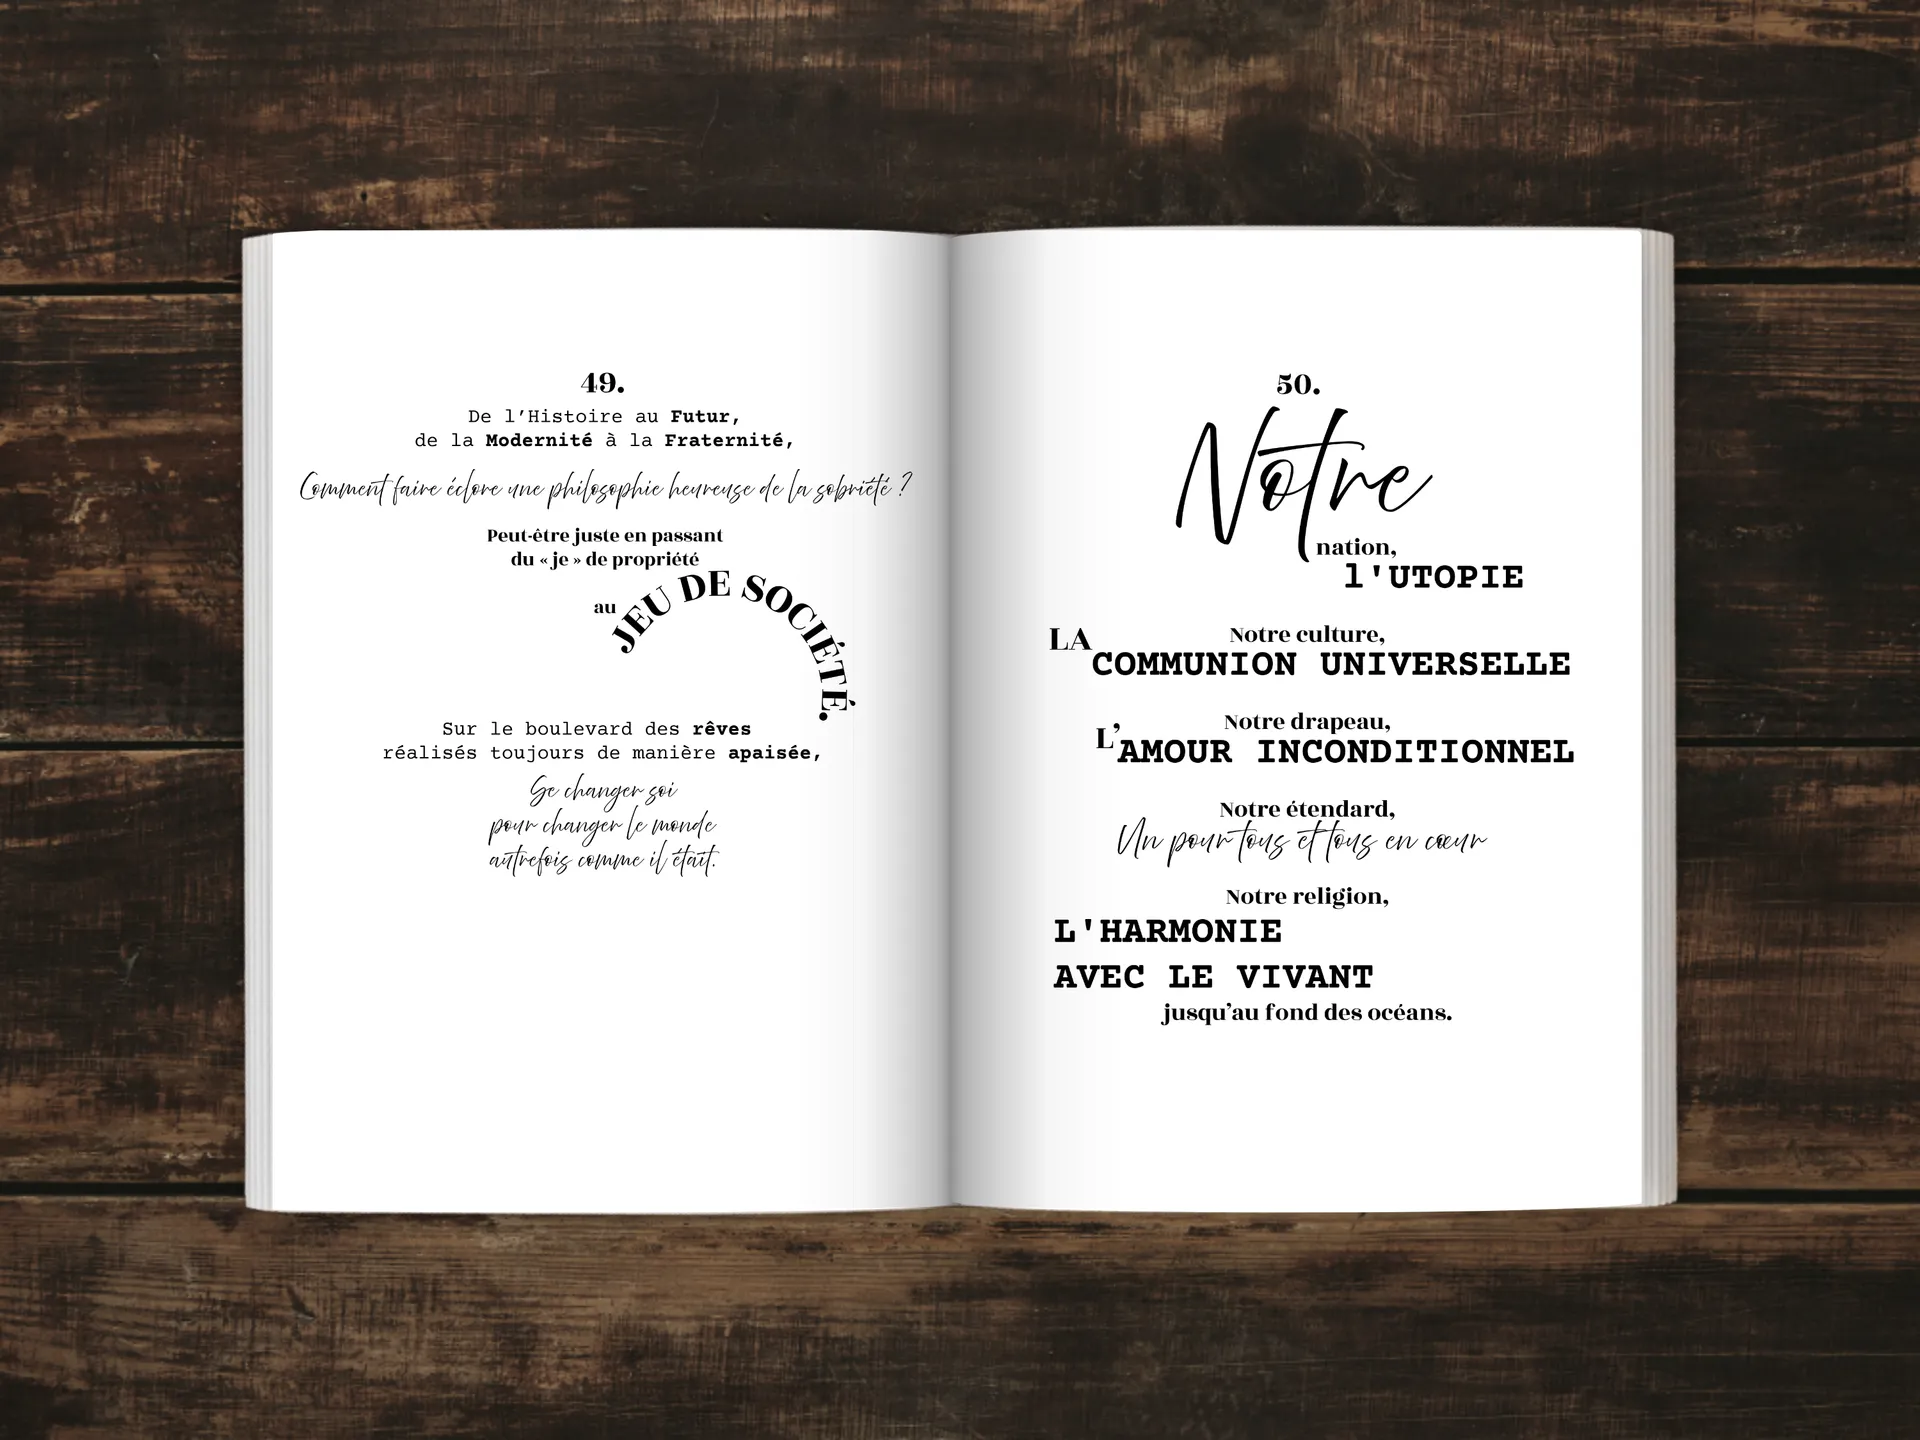 49.
De l’Histoire au Futur,
de la Modernité à la Fraternité,
Comment faire éclore une philosophie heureuse de la sobriété ?
Peut-être juste en passant
du « je » de propriété
au JEU DE SOCIÉTÉ.
Sur le boulevard des rêves
réalisés toujours de manière apaisée,
Se changer soi
pour changer le monde
autrefois comme il était.
50.
Notre
nation,
l'UTOPIE
Notre culture,
LA COMMUNION UNIVERSELLE
Notre drapeau,
L’AMOUR INCONDITIONNEL
Notre étendard,
Un pour tous et tous en cœur
Notre religion,
L'HARMONIE
AVEC LE VIVANT
jusqu’au fond des océans.